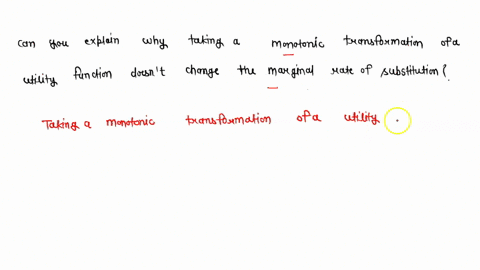 can you explain why taking a monotonic transformation of a
utility function doesn't change the marginal rate of substitution?
Taking a monotonic transformation of a utility